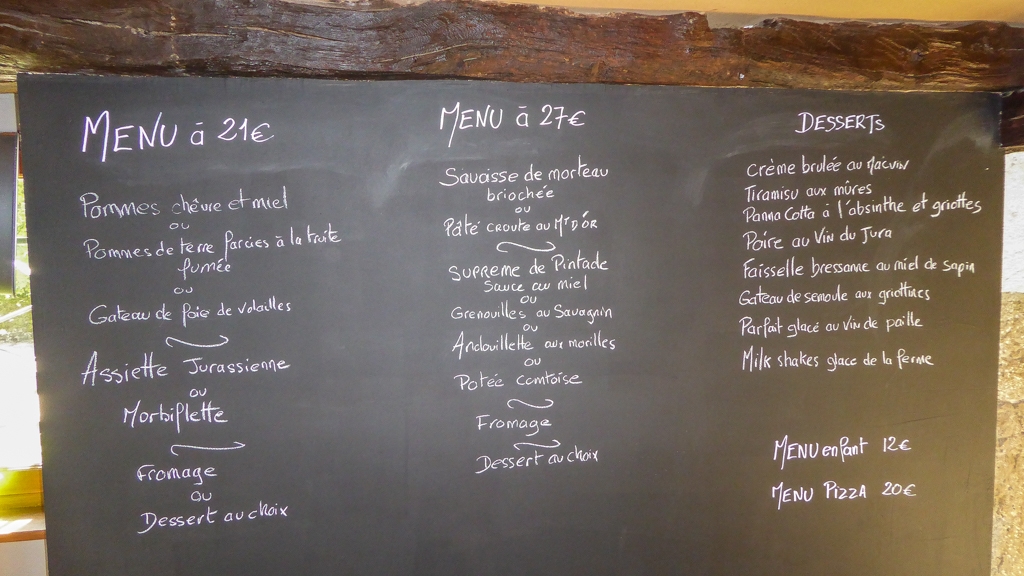 MENU à 21€
Pommes chèvre et miel
ou
Pommes de terre farcies à la truite
fumée
ou
Gateau de foie de volailles
Assiette Jurassienne
ou
Morbiflette
Fromage
ou
Dessert au choix
MENU à 27€
Saucisse de morteau
briochée
ou
Pâté croute au Mt D'ÒR
Supreme de Pintade
Sauce au miel
ou
Grenouilles au Savagnin
ou
Andouillette aux morilles
ou
Potée comtoise
Fromage
Dessert au choix
DESSERTS
Crème brulée au Macvin
Tiramisu aux mûres
Panna Cotta à l'absinthe et griottes
Poire au Vin du Jura
Faisselle bressanne au miel de sapin
Gateau de semoule aux griottines
Parfait glacé au Vin de paille
Milk shakes glace de la ferme
MENU enfant 12€
MENU PIZZA 20€